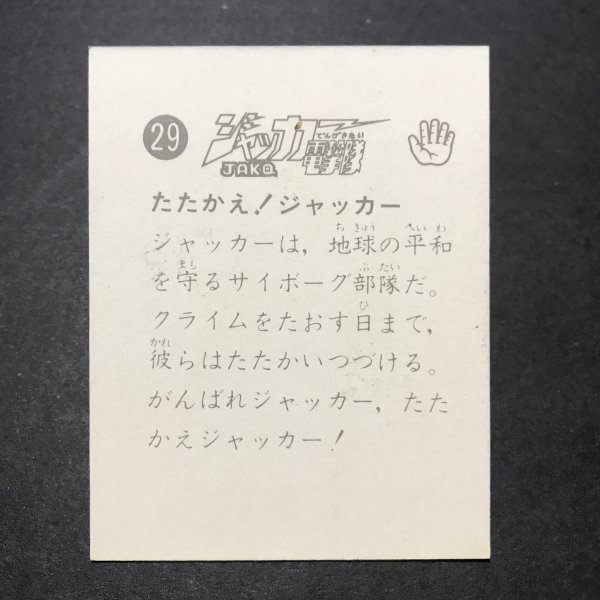 29
ジャッカー電撃隊
でんげきたい
JAKQ
たたかえ!ジャッカー
ちきゅう へいわ
ジャッカーは,地球の平和
まも ぶたい
を守るサイボーグ部隊だ。
ひ
クライムをたおす日まで,
かれ
彼らはたたかいつづける。
がんばれジャッカー,たた
かえジャッカー!